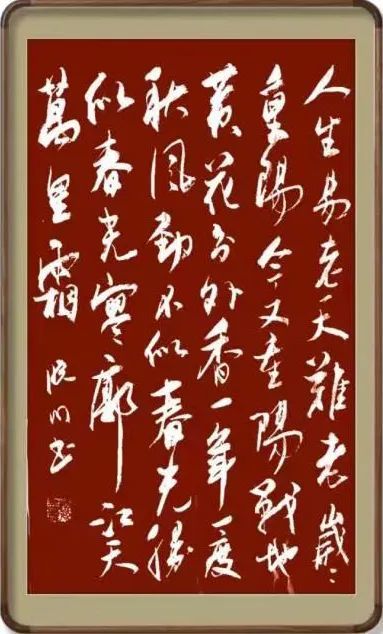 人生易老天難老歲々
重陽今又重陽戰地
黄花分外香一年一度
秋風勁不似春光勝
似春光寥廓江天
萬里霜
书